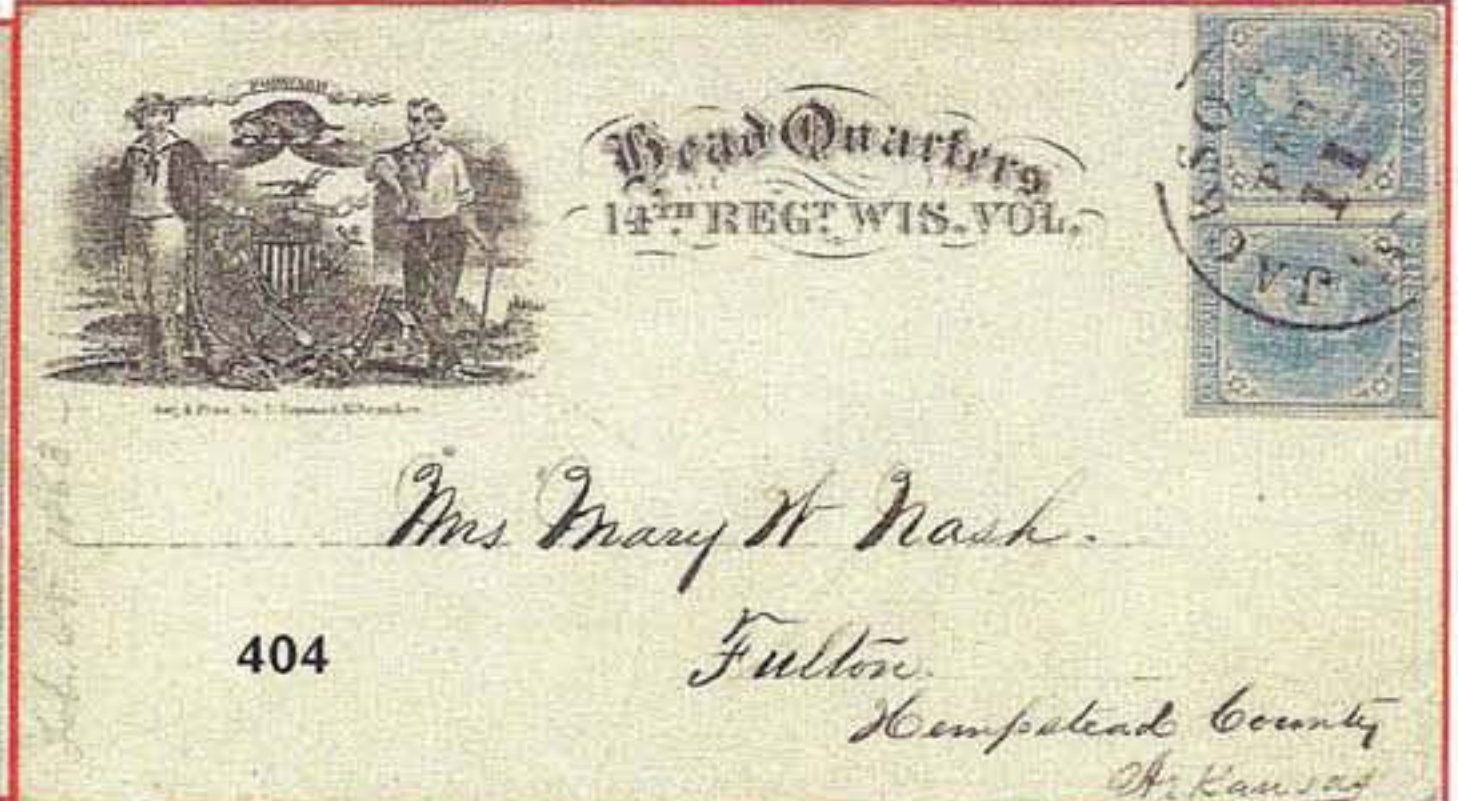 FORWARD
Head Quarters
14TH REGT. WIS. VOL.
Mrs Mary W Nash.
404
Fulton.
Hempstead County
Arkansas